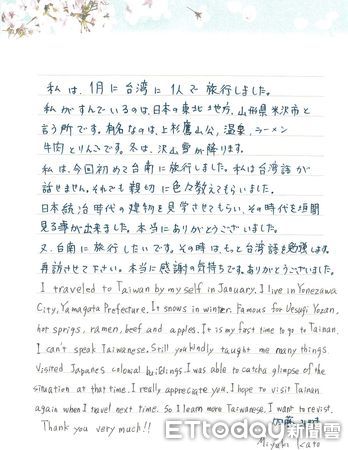 私は、1月に台湾に1人で旅行しました。
私がすんでいるのは、日本の東北地方、山形県米沢市と
言う所です。有名なのは、上杉鷹山公、温泉、ラーメン
牛肉とりんごです。冬は、沢山雪が降ります。
私は、今回初めて台南に旅行しました。私は台湾語が
話せません。それでも親切に色々教えてもらいました。
日本統治時代の建物を見学させてもらい、その時代を垣間
見る事が出来ました。本当にありがとうございました。
又、台南に旅行したいです。その時は、もっと台湾語を勉強します。
再訪させて下さい。本当に感謝の気持ちです。ありがとうございました。
I traveled to Taiwan by my self in January. I live in Yonezawa
City, Yamagata Prefecture. It snows in winter. Famous for Uesugi Yozan,
hot sprigs, ramen, beef and apples. It is my first time to go to Tainan.
I can't speak Taiwanese. Still you kindly taught me many things.
Visited Japanes colonial buildings. I was able to catch glimpse of the
situation at that time. I really appreciate you. I hope to visit Tainan
again when I travel next time. So I learn more Taiwanese. I want to revist.
Thank you very much!!
ETtoday新聞雲
Miyuki Kato